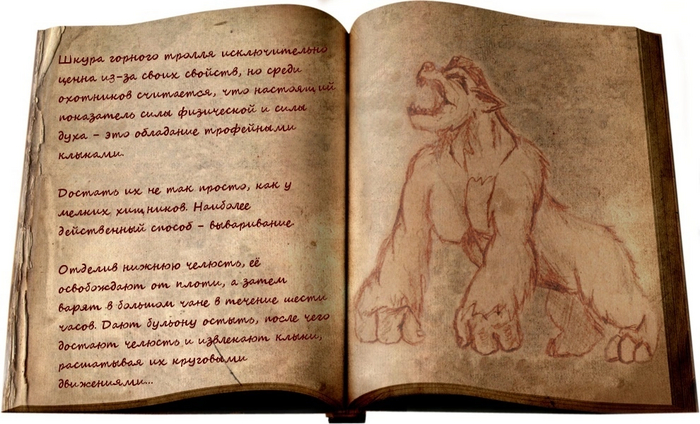 Шкура горного тролля исключительно
ценна из-за своих свойств, но среди
охотников считается, что настоящий
показатель силы физической и силы
духа – это обладание трофейными
клыками.
Достать их не так просто, как у
мелких хищников. Наиболее
действенный способ – вываривание.
Отделив нижнюю челюсть, её
освобождают от плоти, а затем
варят в большом чане в течение шести
часов. Дают бульону остыть, после чего
достают челюсть и извлекают клыки,
расшатывая их круговыми
движениями...